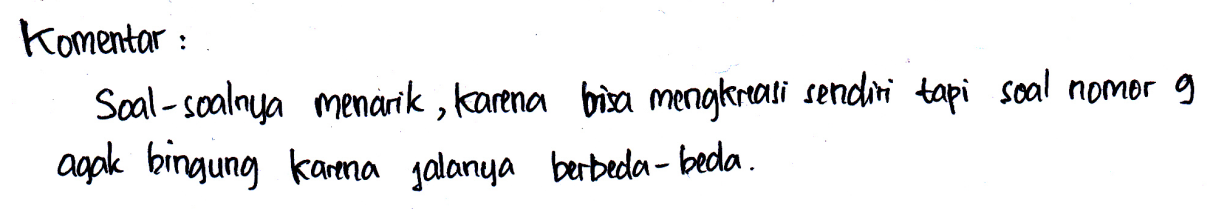 Komentar :
Soal-soalnya menarik, karena bisa mengkreasi sendiri tapi soal nomor 9
agak bingung karena jalanya berbeda-beda.